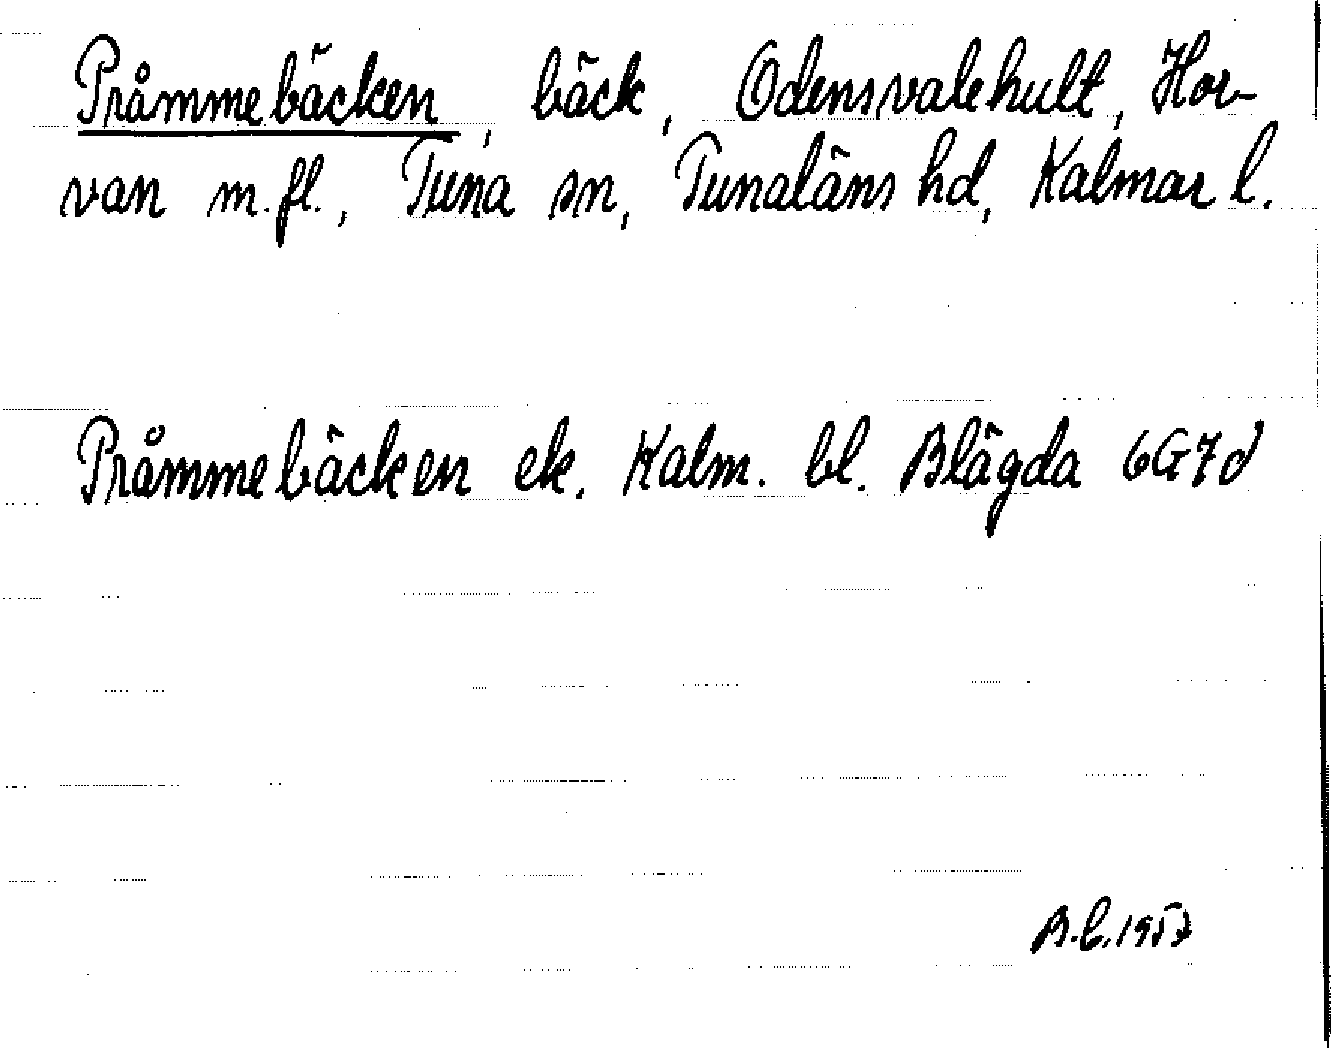 Pråmmebäcken, bäck, Odensvalehult, Hor-
van m.fl., Tuna sn, Tunaläns hd, Kalmar l.
Pråmmebäcken ek. Kalm. bl. Blägda 6G7d